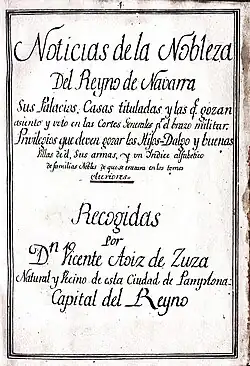 Noticias de la Nobleza
Del Reyno de Navarra
Sus Palacios, Casas tituladas y las q̃. gozan
asiento y voto en las Cortes Generales pr. el brazo militar.
Privilegios que deven gozar los Hijos-Dalgo y buenas
Villas de èl, Sus armas, y un Indice alfabetico
de familias Nobles de que se tratara en los tomos
Recogidas
por
Dn. Vicente Aoiz de Zuza
Natural y Vecino de esta Ciudad de Pamplona:
Capital del Reyno